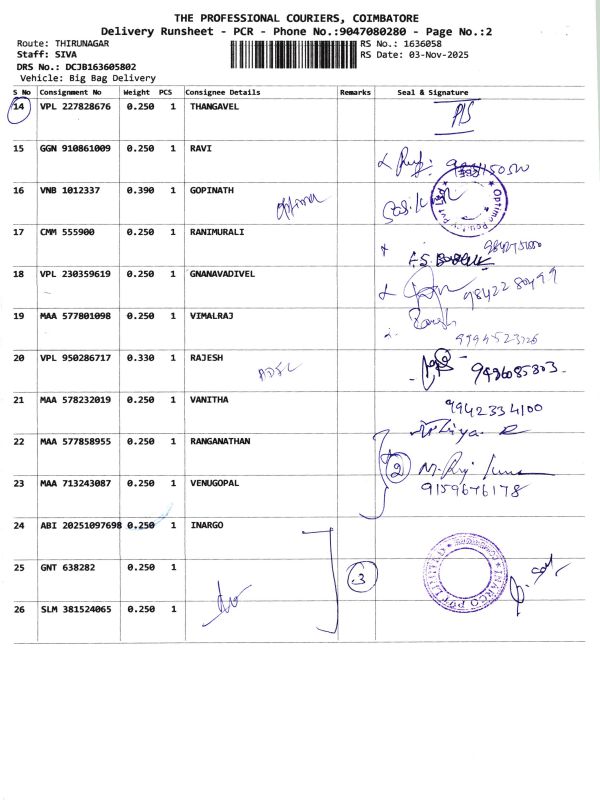 THE PROFESSIONAL COURIERS, COIMBATORE
Delivery Runsheet - PCR - Phone No.:9047080280 - Page No.:2
Route: THIRUNAGAR RS No.: 1636058
Staff: SIVA RS Date: 03-Nov-2025
DRS No.: DCJB163605802
Vehicle: Big Bag Delivery
S No Consignment No Weight PCS Consignee Details Remarks Seal & Signature
14 VPL 227828676 0.250 1 THANGAVEL
15 GGN 910861009 0.250 1 RAVI
16 VNB 1012337 0.390 1 GOPINATH
17 CMM 555900 0.250 1 RANIMURALI
18 VPL 230359619 0.250 1 GNANAVADIVEL
9842280499
19 MAA 577801098 0.250 1 VIMALRAJ
20 VPL 950286717 0.330 1 RAJESH
21 MAA 578232019 0.250 1 VANITHA
9942334100
22 MAA 577858955 0.250 1 RANGANATHAN
2
23 MAA 713243087 0.250 1 VENUGOPAL
9159676178
24 ABI 20251097698 0.250 1 INARGO
25 GNT 638282 0.250 1
3
26 SLM 381524065 0.250 1